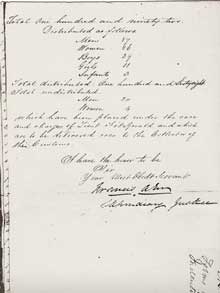 Total one hundred and ninety two.
Distributed as follows
Men
Women
Boys 29
Girls 11
Infants 3
Total distributed One hundred and Sixty eight
Total undistributed
Men 20
Women 4
which have been placed under the care
and charge of Lieut Fitzgerald and which
are to be delivered over to the Collector of
the Customs.
I have the honor to be
Sir
Your Most Obedt Servant